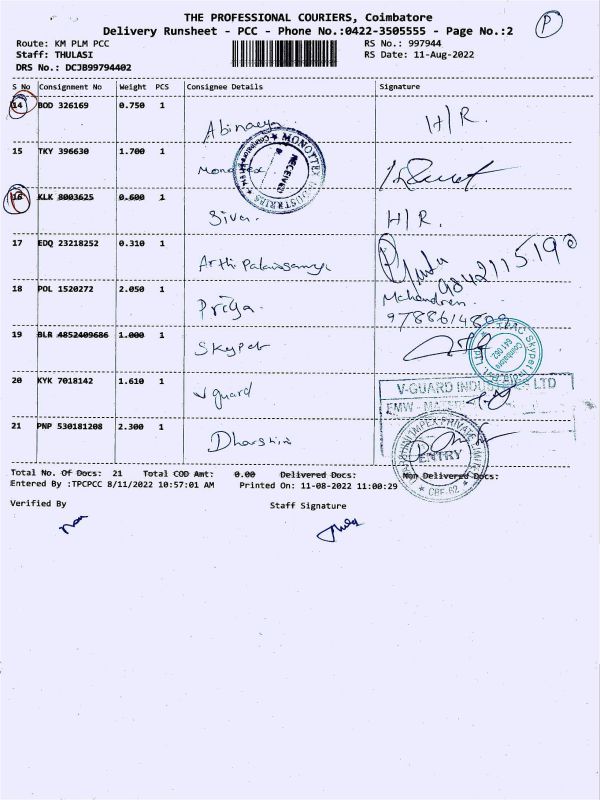 THE PROFESSIONAL COURIERS, Coimbatore
Delivery Runsheet - PCC - Phone No.:0422-3505555 - Page No.:2
P
Route: KM PLM PCC
RS No.: 997944
Staff: THULASI
RS Date: 11-Aug-2022
DRS No.: DCJB99794402
S No Consignment No Weight PCS Consignee Details Signature
14 BOD 326169 0.750 1
Abinaya H/R.
15 TKY 396630 1.700 1
MONOTTEX INDUSTRIES
RECEIVED
16 KLK 8003625 0.600 1
Siva. H/R.
17 EDQ 23218252 0.310 1
18 POL 1520272 2.050 1
Priya. Mahendren
19 BLR 4852409686 1.000 1
Skypet
Coimbatore
641 062
20 KYK 7018142 1.610 1
V guard
V-GUARD INDU LTD
21 PNP 530181208 2.300 1
ENTRY
CBE-62
Total No. Of Docs: 21 Total COD Amt: 0.00 Delivered Docs: Non Delivered Docs:
Entered By :TPCPCC 8/11/2022 10:57:01 AM Printed On: 11-08-2022 11:00:29
Verified By Staff Signature